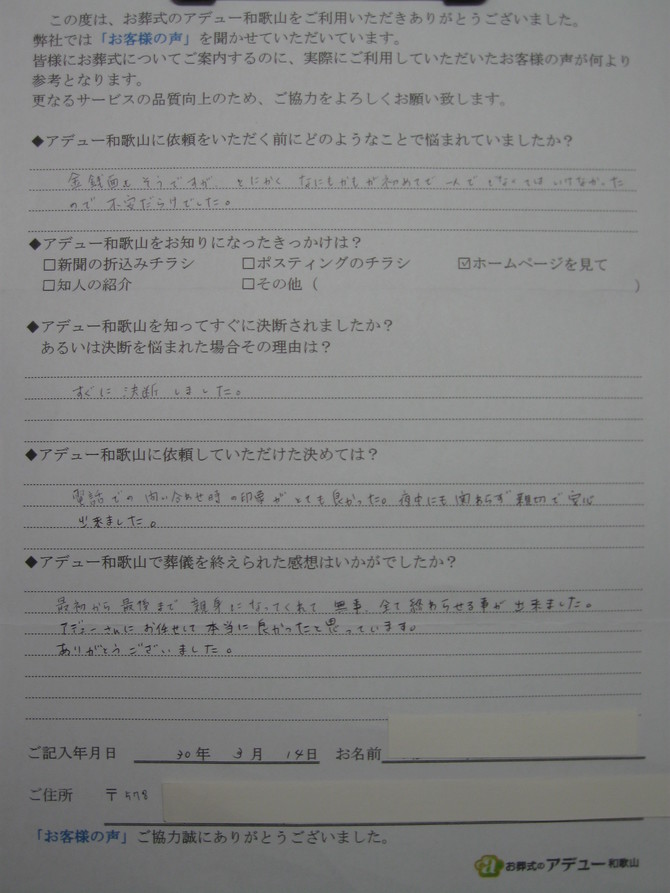 この度は、お葬式のアデュー和歌山をご利用いただきありがとうございました。
弊社では「お客様の声」を聞かせていただいています。
皆様にお葬式についてご案内するのに、実際にご利用していただいたお客様の声が何より
参考となります。
更なるサービスの品質向上のため、ご協力をよろしくお願い致します。
◆アデュー和歌山に依頼をいただく前にどのようなことで悩まれていましたか？
金銭面もそうですが、とにかく なにもかもが初めてで 一人で しなくてはいけなかった
ので 不安だらけでした。
◆アデュー和歌山をお知りになったきっかけは？
□新聞の折込みチラシ □ポスティングのチラシ ☑ホームページを見て
□知人の紹介 □その他（ ）
◆アデュー和歌山を知ってすぐに決断されましたか？
あるいは決断を悩まれた場合その理由は？
すぐに 決断 しました。
◆アデュー和歌山に依頼していただけた決めては？
電話での 問い合わせ時の印象が とても良かった。夜中にも関わらず 親切で 安心
出来ました。
◆アデュー和歌山で葬儀を終えられた感想はいかがでしたか？
最初から 最後まで 親身になってくれて 無事、全て 終わらせる事が 出来ました。
アデューさんに お任せして 本当に 良かったと思っています。
ありがとうございました。
ご記入年月日 30年 3月 14日 お名前
ご住所 〒578
「お客様の声」ご協力誠にありがとうございました。
お葬式のアデュー和歌山